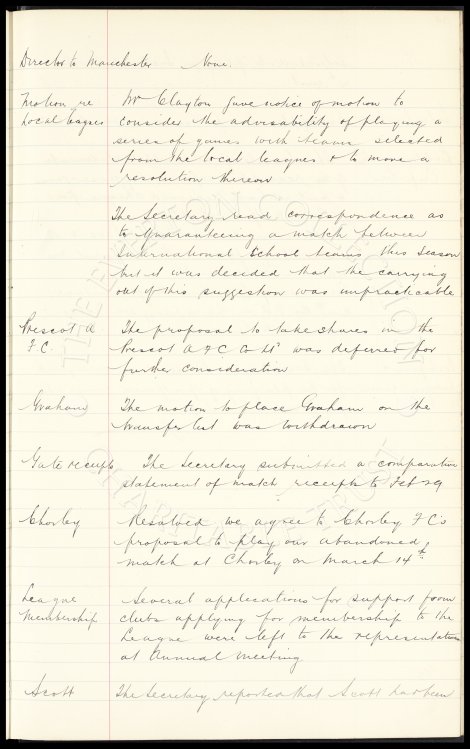 Director to Manchester None.
Motion re Mr Clayton gave notice of motion to
Local leagues consider the advisability of playing a
series of games with teams selected
from the local leagues & to move a
resolution thereon
The Secretary read correspondence as
to guaranteeing a match between
International School teams this season
but it was decided that the carrying
out of this suggestion was unpracticable
Prescot A The proposal to take shares in the
F C. Prescot A F C Co Ld was deferred for
further consideration
Graham The motion to place Graham on the
transfer list was withdrawn
Gate receipts The Secretary submitted a comparative
statement of match receipts to Feb 29
Chorley Resolved we agree to Chorley F C's
proposal to play our abandoned
match at Chorley on March 14th
League Several applications for support from
Membership clubs applying for membership to the
League were left to the representatives
at Annual Meeting
Scott The Secretary reported that Scott had been